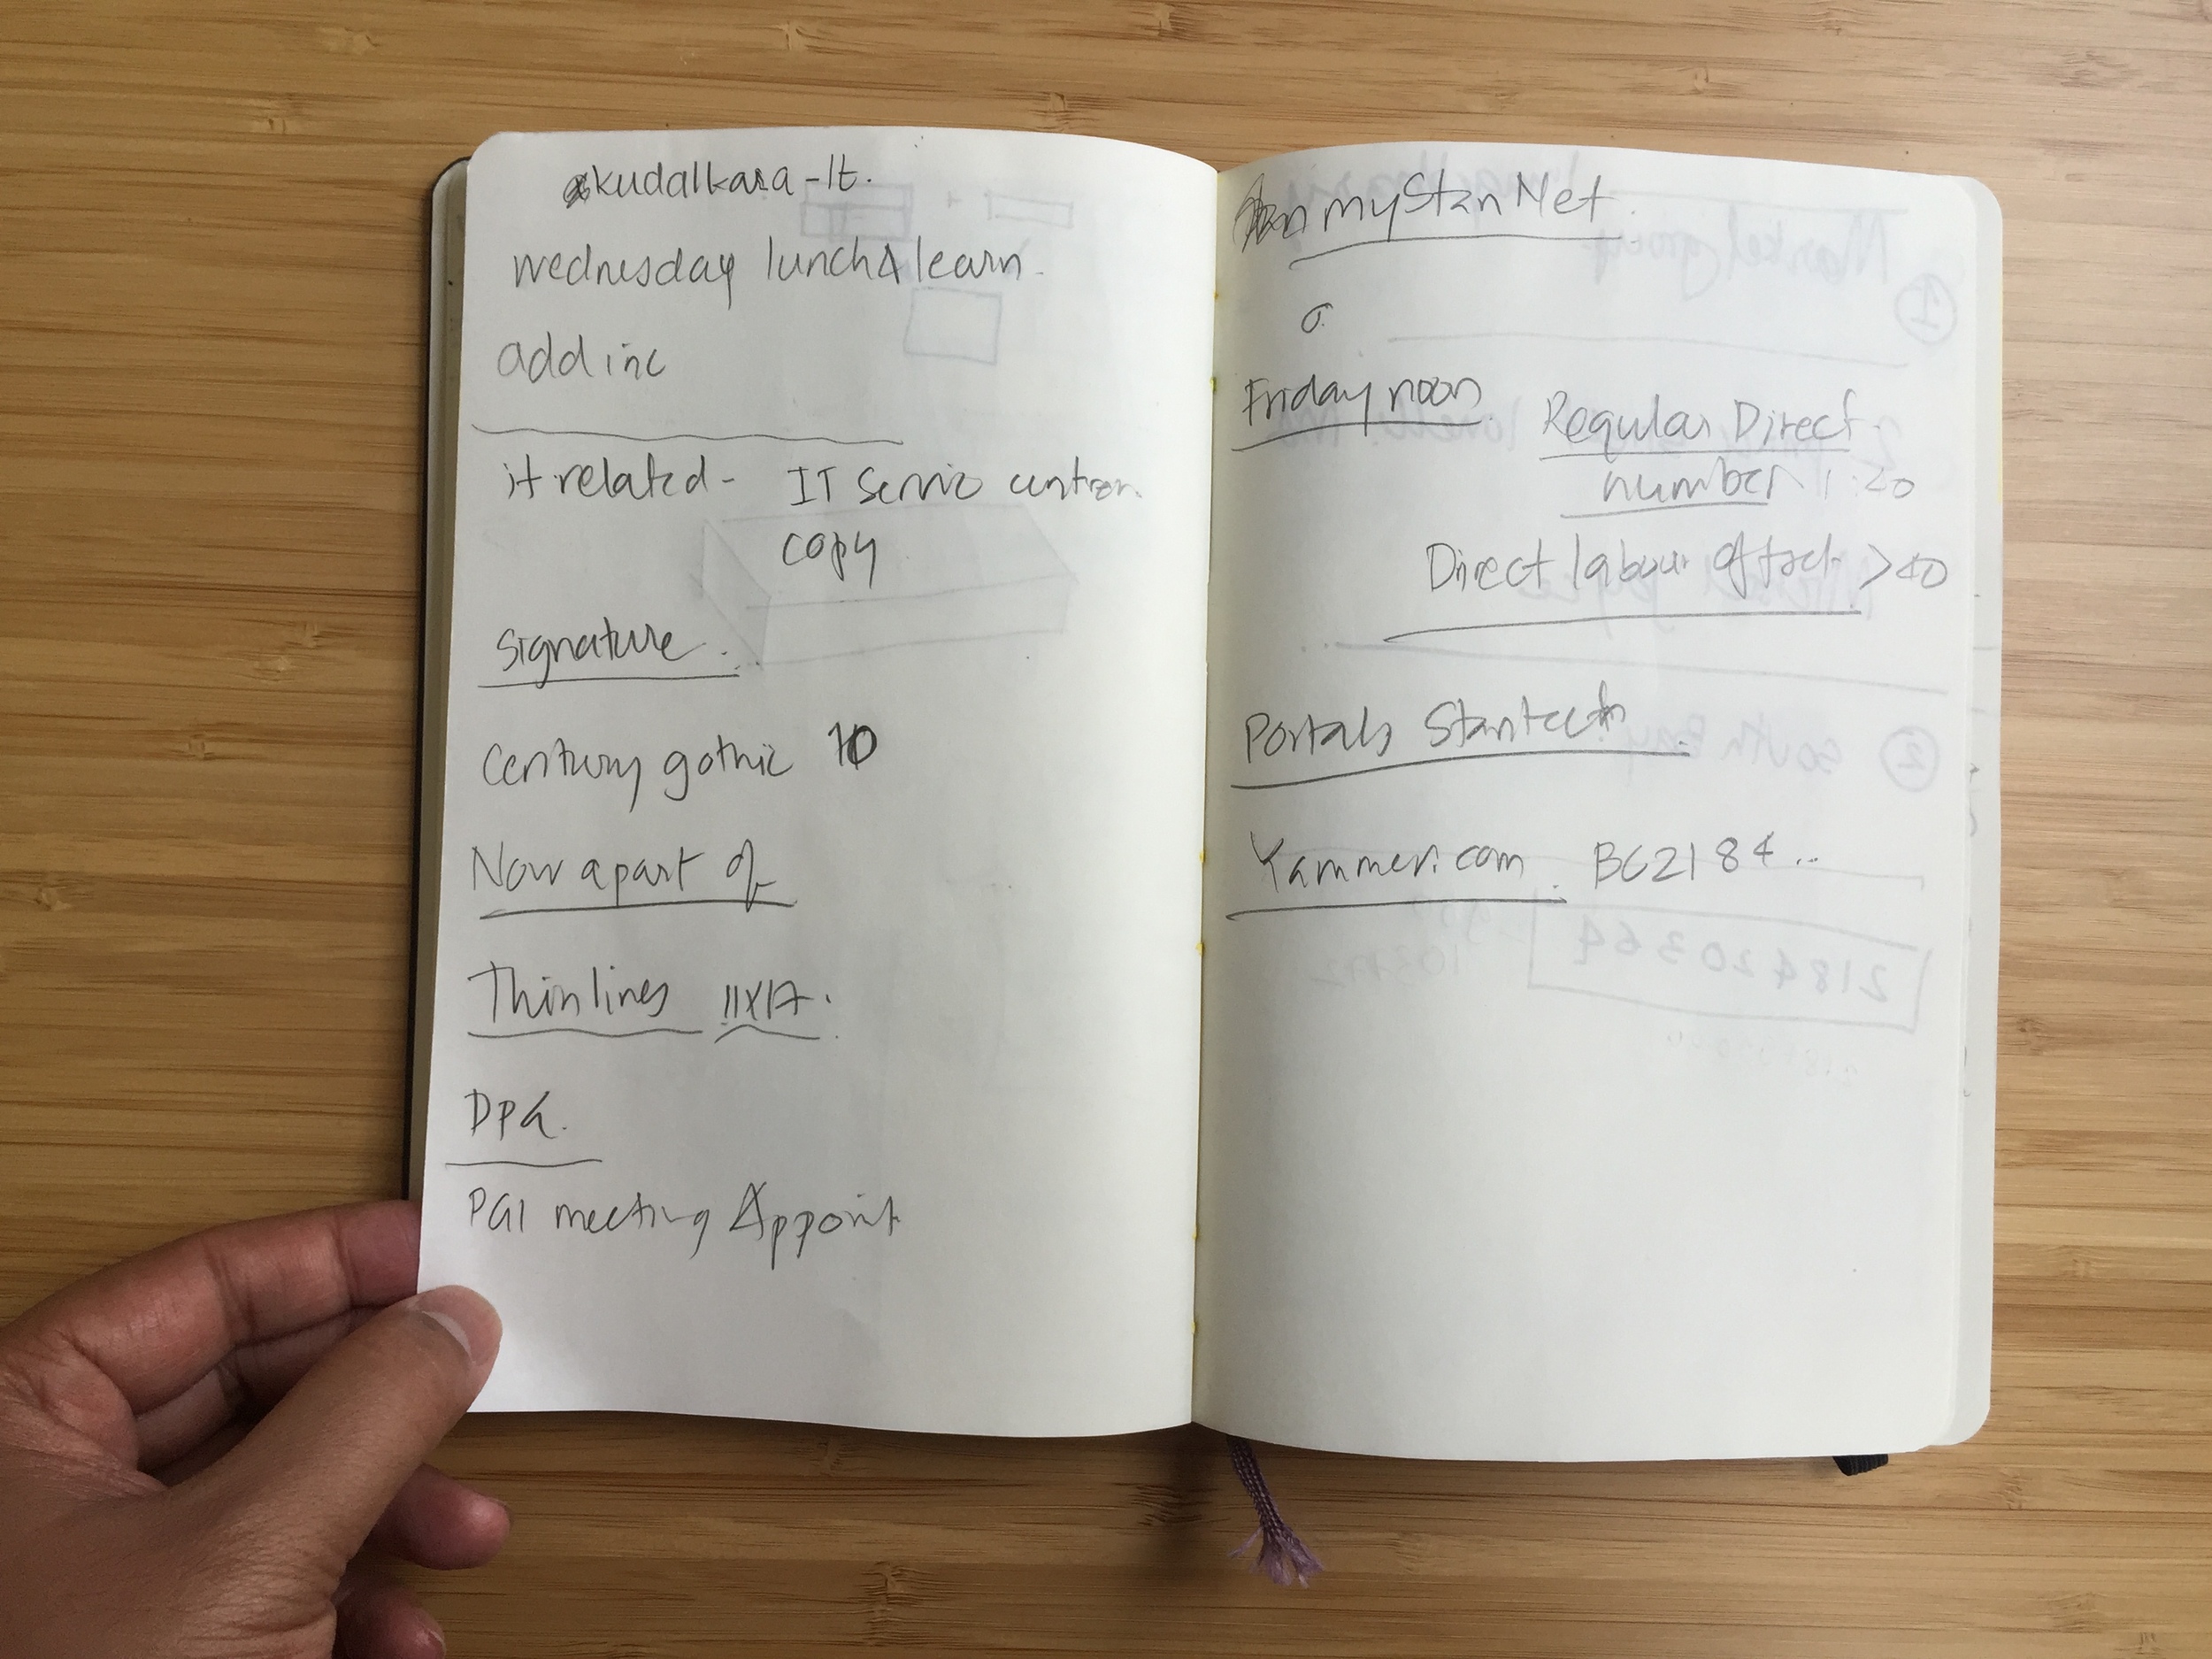 kudalkara-lt.
wednesday lunch & learn
add inc
it related - IT
copy
signature
Century gothic 10
Now a part of
Thin lines 11x17.
PGI meeting Appoint
myStanNet
Friday noon
Regular Direct
number
Direct labour >40
Portals Stantec
Yammer.com BC2184..